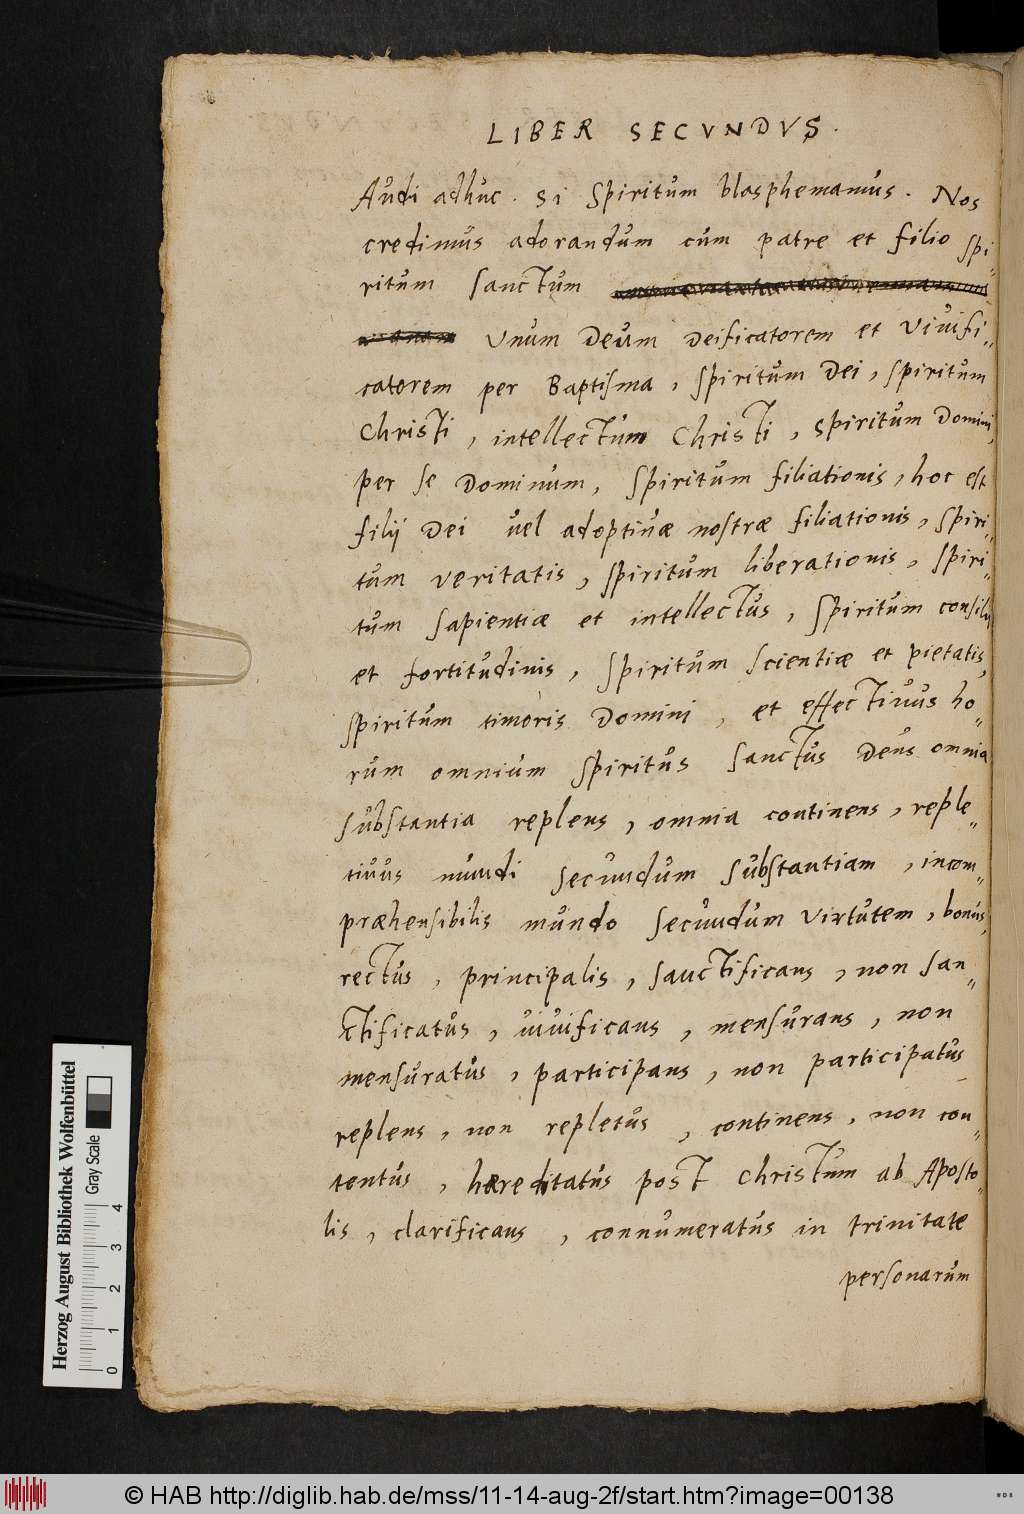 LIBER SECVNDVS.
Audi adhuc. Si Spiritum blasphemamus. Nos
credimus adorandum cum patre et filio spi-
ritum sanctum
Vnum Deum Deificatorem et Vivifi-
catorem per Baptisma, spiritum Dei, spiritum
Christi, intellectum Christi, Spiritum Domini,
per se Dominum, Spiritum filiationis, hoc est
filij Dei vel adoptivæ nostræ filiationis, spiri-
tum veritatis, spiritum liberationis, spiri-
tum sapientiæ et intellectus, spiritum consilij
et fortitudinis, spiritum scientiæ et pietatis,
spiritum timoris Domini, et effectivus ho-
rum omnium spiritus sanctus Deus omnia
substantia replens, omnia continens, reple-
tivus mundi secundum substantiam, incom-
præhensibilis mundo secundum virtutem, bonus,
rectus, principalis, sanctificans, non san-
ctificatus, vivificans, mensurans, non
mensuratus, participans, non participatus
replens, non repletus, continens, non con-
tentus, hereditatus post Christum ab Aposto-
lis, clarificans, connumeratus in trinitate
personarum
Herzog August Bibliothek Wolfenbüttel
Gray Scale
0 1 2 3 4
© HAB http://diglib.hab.de/mss/11-14-aug-2f/start.htm?image=00138